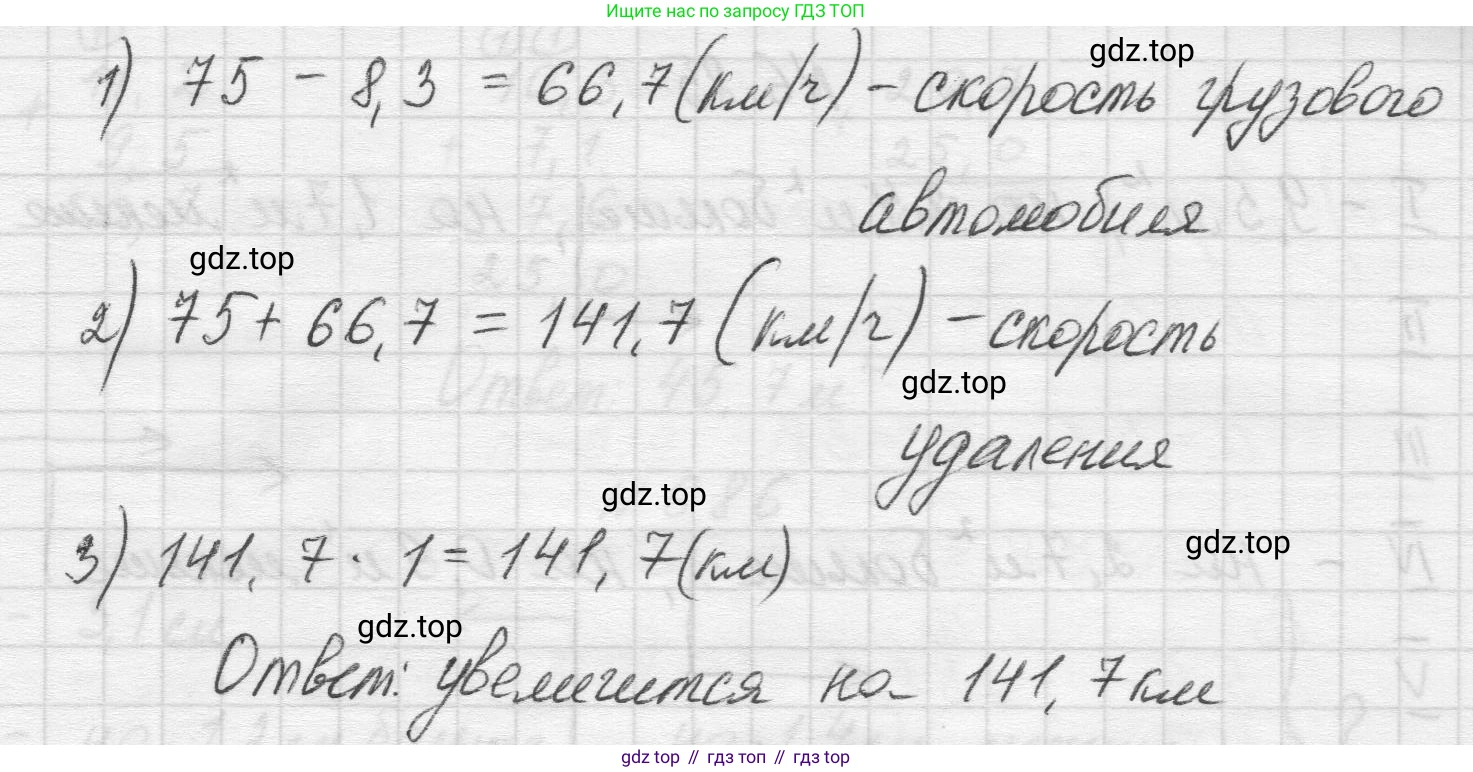 Ищите нас по запросу ГДЗ ТОП
gdz.top
1) 75 - 8,3 = 66,7 (км/ч) - скорость грузового
автомобиля
gdz.top
2) 75 + 66,7 = 141,7 (км/ч) - скорость
gdz.top
удаления
gdz.top
3) 141,7 · 1 = 141,7 (км)
gdz.top
gdz.top
Ответ: увеличится на 141,7 км
gdz.top // гдз топ // гдз top